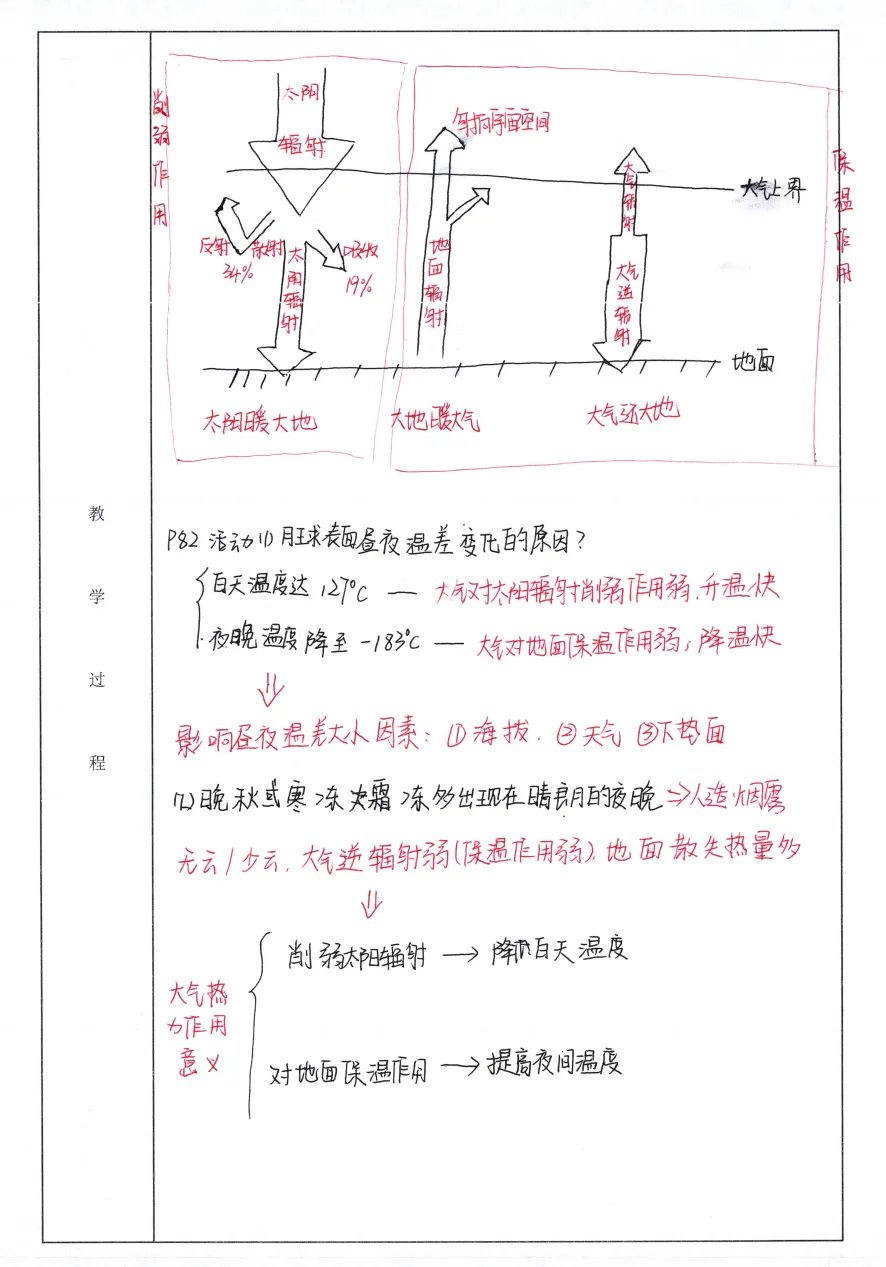 教学过程
削弱作用
太阳
辐射
反射
34%
散射
太阳辐射
吸收
19%
射向宇宙空间
地面辐射
大气辐射
大气逆辐射
大气上界
保温作用
地面
太阳暖大地
大地暖大气
大气还大地
P82 活动(1) 月球表面昼夜温差变化的原因?
白天温度达 127℃ — 大气对太阳辐射削弱作用弱,升温快
夜晚温度降至 -183℃ — 大气对地面保温作用弱;降温快
⇓
影响昼夜温差大小因素:①海拔.②天气 ③下垫面
(2)晚秋或寒冻灾霜冻多出现在晴朗的夜晚⇒人造烟雾
无云/少云,大气逆辐射弱(保温作用弱),地面散失热量多
⇓
大气热力作用意义
削弱太阳辐射 → 降低白天温度
对地面保温作用 → 提高夜间温度